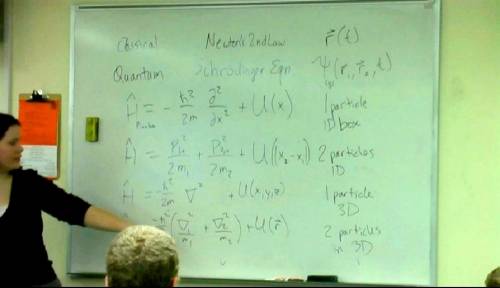 Classical Newton's 2nd Law r⃗(t)
Quantum Schrodinger Eqn Ψ(r₁, r⃗₂, t)
Ĥ = - ħ²/2m ∂²/∂x² + U(x) 1 particle
1D box
Ĥ = P̂₁ₓ²/2m₁ + P̂₂ₓ²/2m₂ + U(|x₂-x₁|) 2 particles
1D
Ĥ = -ħ²/2m ∇² + U(x,y,z) 1 particle
3D
-ħ²/2 (∇₁²/m₁ + ∇₂²/m₂) + U(r⃗) 2 particles
in 3D